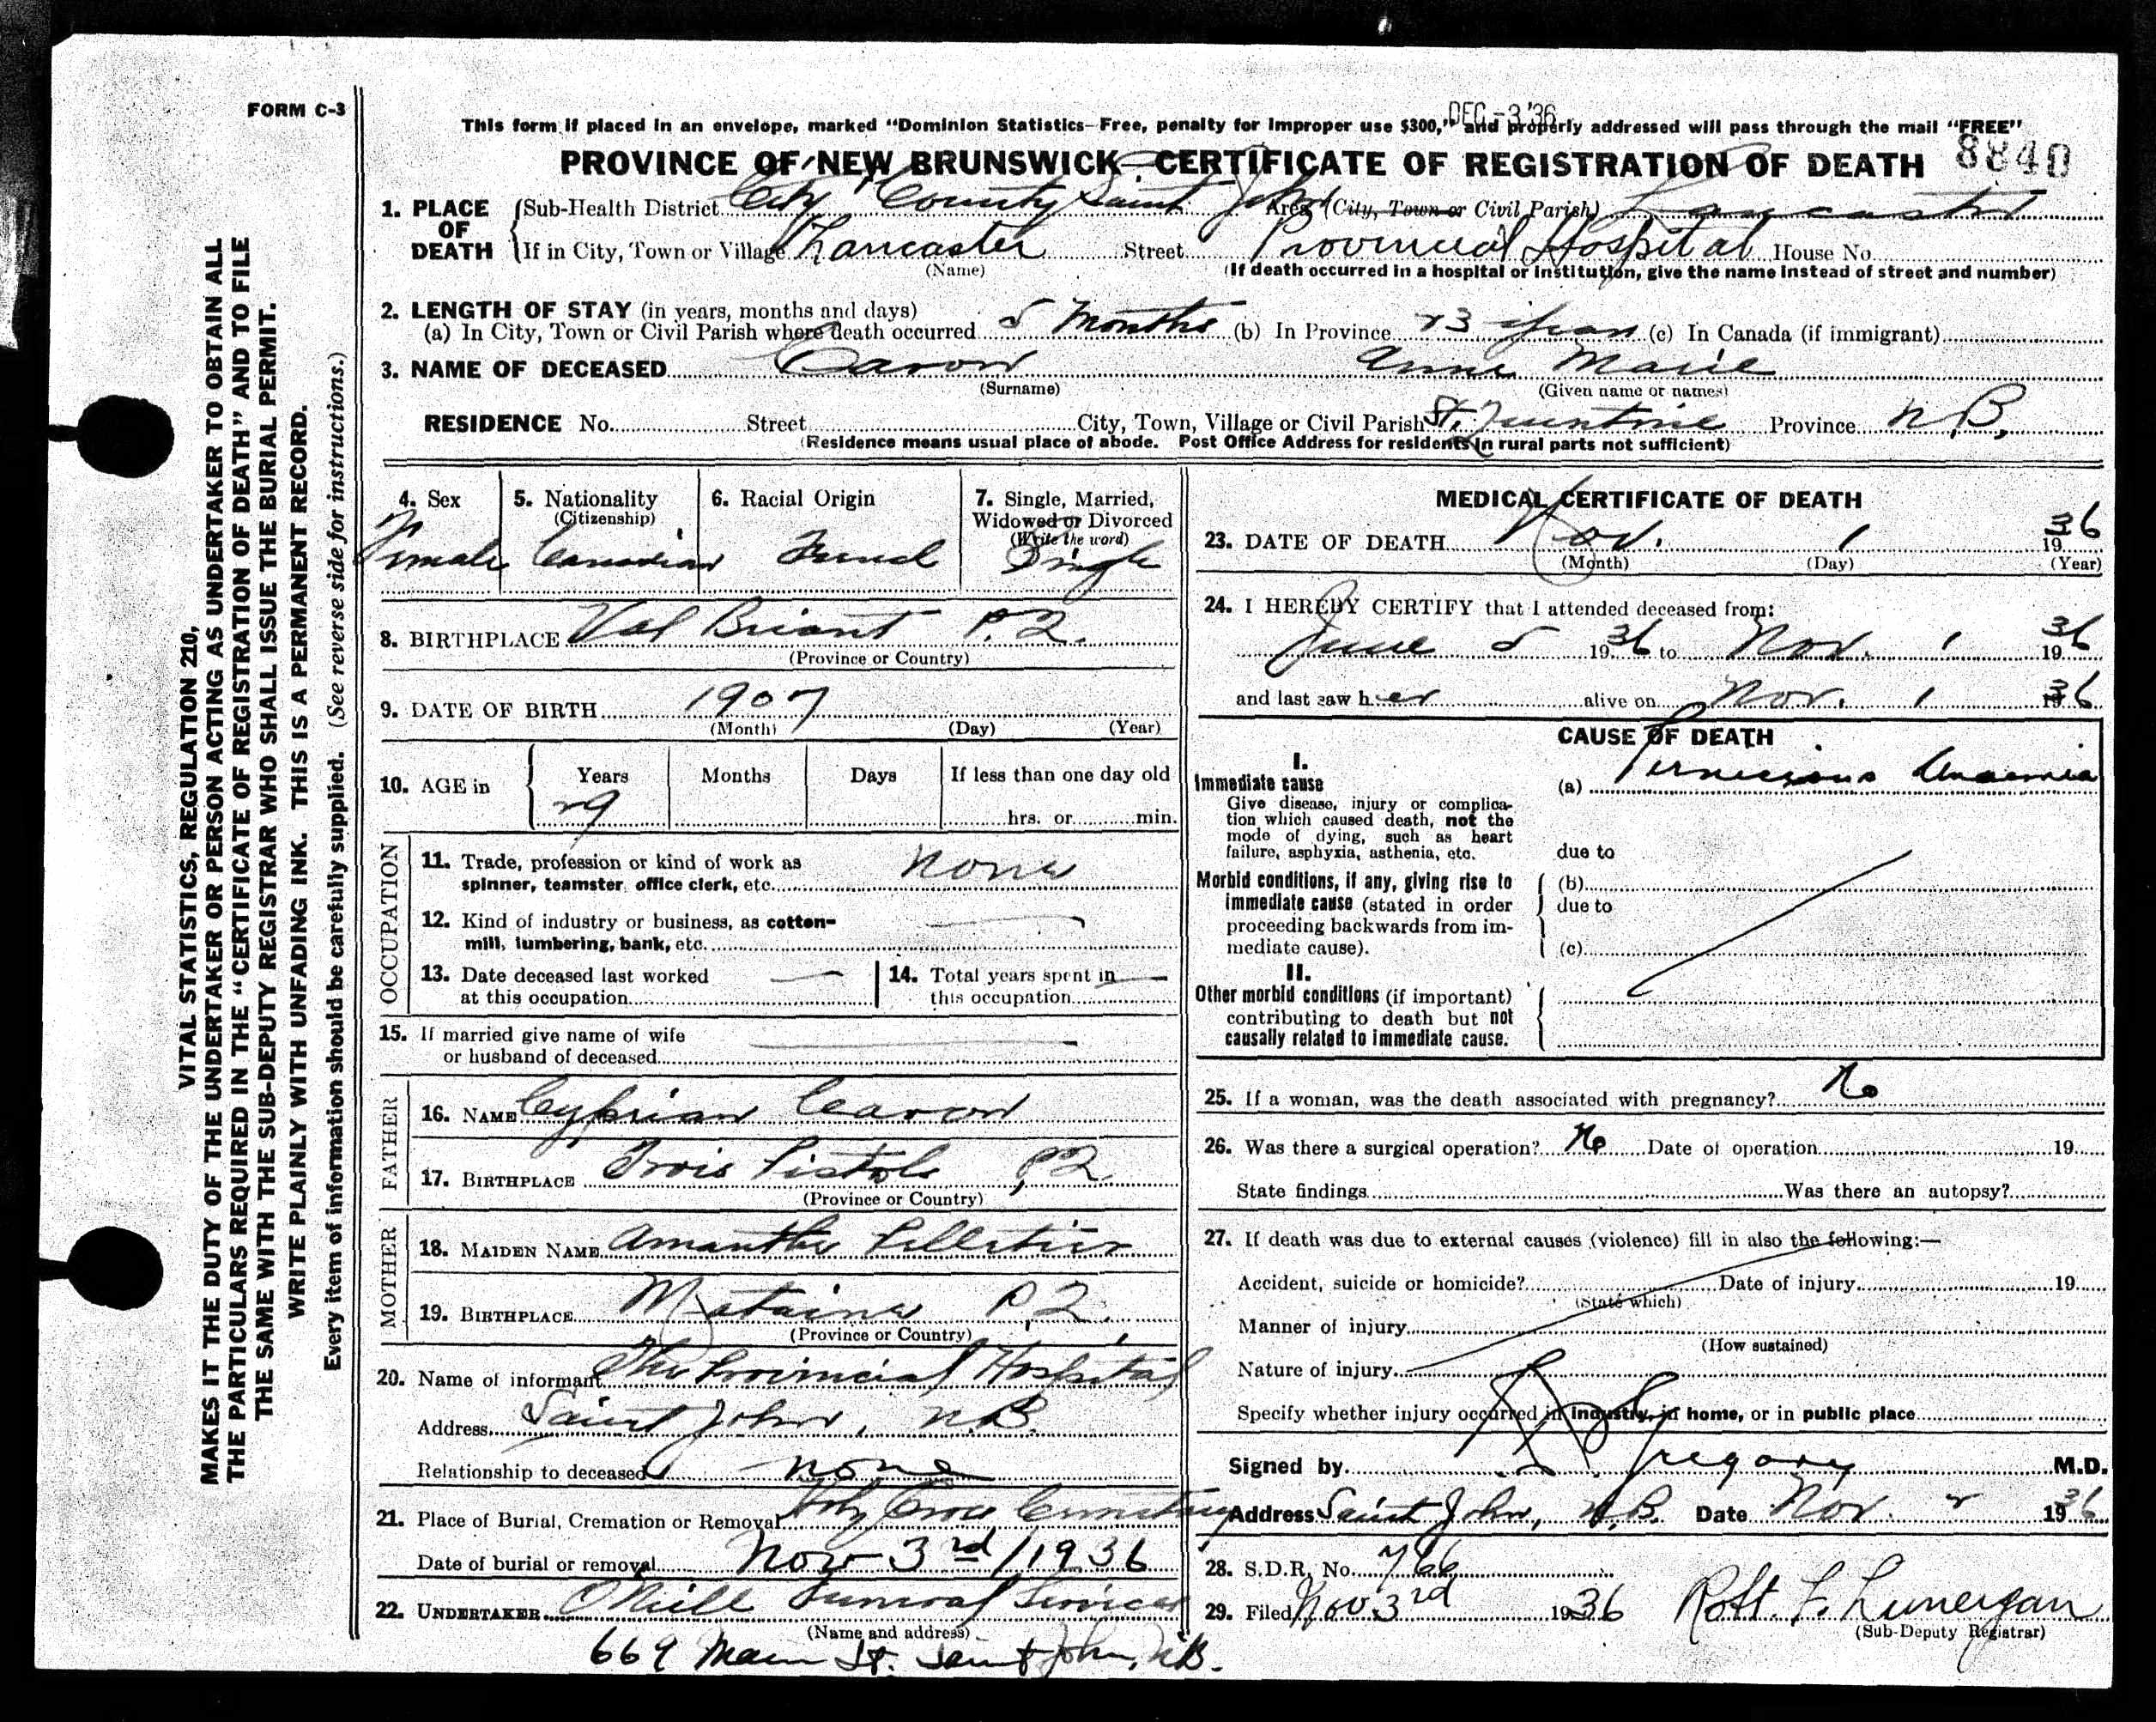 FORM C-3
DEC -3 '36
This form if placed in an envelope, marked "Dominion Statistics—Free, penalty for improper use $300," and properly addressed will pass through the mail "FREE"
PROVINCE OF NEW BRUNSWICK—CERTIFICATE OF REGISTRATION OF DEATH 8840
1. PLACE OF DEATH
Sub-Health District City County Saint John Area (City, Town or Civil Parish) Lancaster
If in City, Town or Village Lancaster Street Provincial Hospital House No.
(Name) (If death occurred in a hospital or institution, give the name instead of street and number)
2. LENGTH OF STAY (in years, months and days)
(a) In City, Town or Civil Parish where death occurred 5 Months (b) In Province 23 years (c) In Canada (if immigrant)
3. NAME OF DECEASED Caron Anne Marie
(Surname) (Given name or names)
RESIDENCE No. Street City, Town, Village or Civil Parish St. Quintine Province N.B.
(Residence means usual place of abode. Post Office Address for residents in rural parts not sufficient)
4. Sex
Female
5. Nationality
(Citizenship)
Canadian
6. Racial Origin
French
7. Single, Married,
Widowed or Divorced
(Write the word)
Single
8. BIRTHPLACE Val Briant P.Q.
(Province or Country)
9. DATE OF BIRTH 1907
(Month) (Day) (Year)
10. AGE in Years Months Days If less than one day old
29 hrs. or min.
OCCUPATION
11. Trade, profession or kind of work as
spinner, teamster, office clerk, etc. None
12. Kind of industry or business, as cotton-
mill, lumbering, bank, etc.
13. Date deceased last worked
at this occupation
14. Total years spent in
this occupation
15. If married give name of wife
or husband of deceased
FATHER
16. NAME Cyprian Caron
17. BIRTHPLACE Trois Pistols P.Q.
(Province or Country)
MOTHER
18. MAIDEN NAME Amantha Pelletier
19. BIRTHPLACE Mataine P.Q.
(Province or Country)
20. Name of informant The Provincial Hospital
Address Saint John, N.B.
Relationship to deceased none
21. Place of Burial, Cremation or Removal Holy Cross Cemetery
Date of burial or removal Nov 3rd / 1936
22. UNDERTAKER O'Neill Funeral Services
(Name and address)
669 Main St. Saint John, N.B.
MEDICAL CERTIFICATE OF DEATH
23. DATE OF DEATH Nov. 1 1936
(Month) (Day) (Year)
24. I HEREBY CERTIFY that I attended deceased from:
June 5 1936 to Nov. 1 1936
and last saw her alive on Nov. 1 1936
CAUSE OF DEATH
I.
Immediate cause
Give disease, injury or complica-
tion which caused death, not the
mode of dying, such as heart
failure, asphyxia, asthenia, etc.
(a) Pernicious Anaemia
due to
Morbid conditions, if any, giving rise to
immediate cause (stated in order
proceeding backwards from im-
mediate cause).
(b)
due to
(c)
II.
Other morbid conditions (if important)
contributing to death but not
causally related to immediate cause.
25. If a woman, was the death associated with pregnancy? No
26. Was there a surgical operation? No Date of operation 19
State findings Was there an autopsy?
27. If death was due to external causes (violence) fill in also the following:—
Accident, suicide or homicide? Date of injury 19
(State which)
Manner of injury
(How sustained)
Nature of injury
Specify whether injury occurred in industry, in home, or in public place
Signed by Gregory M.D.
Address Saint John, N.B. Date Nov. 2 1936
28. S.D.R. No. 766
29. Filed Nov 3rd 1936 Robt. F. Lunergan
(Sub-Deputy Registrar)
VITAL STATISTICS, REGULATION 210,
MAKES IT THE DUTY OF THE UNDERTAKER OR PERSON ACTING AS UNDERTAKER TO OBTAIN ALL
THE PARTICULARS REQUIRED IN THE "CERTIFICATE OF REGISTRATION OF DEATH" AND TO FILE
THE SAME WITH THE SUB-DEPUTY REGISTRAR WHO SHALL ISSUE THE BURIAL PERMIT.
WRITE PLAINLY WITH UNFADING INK. THIS IS A PERMANENT RECORD.
Every item of information should be carefully supplied. (See reverse side for instructions.)